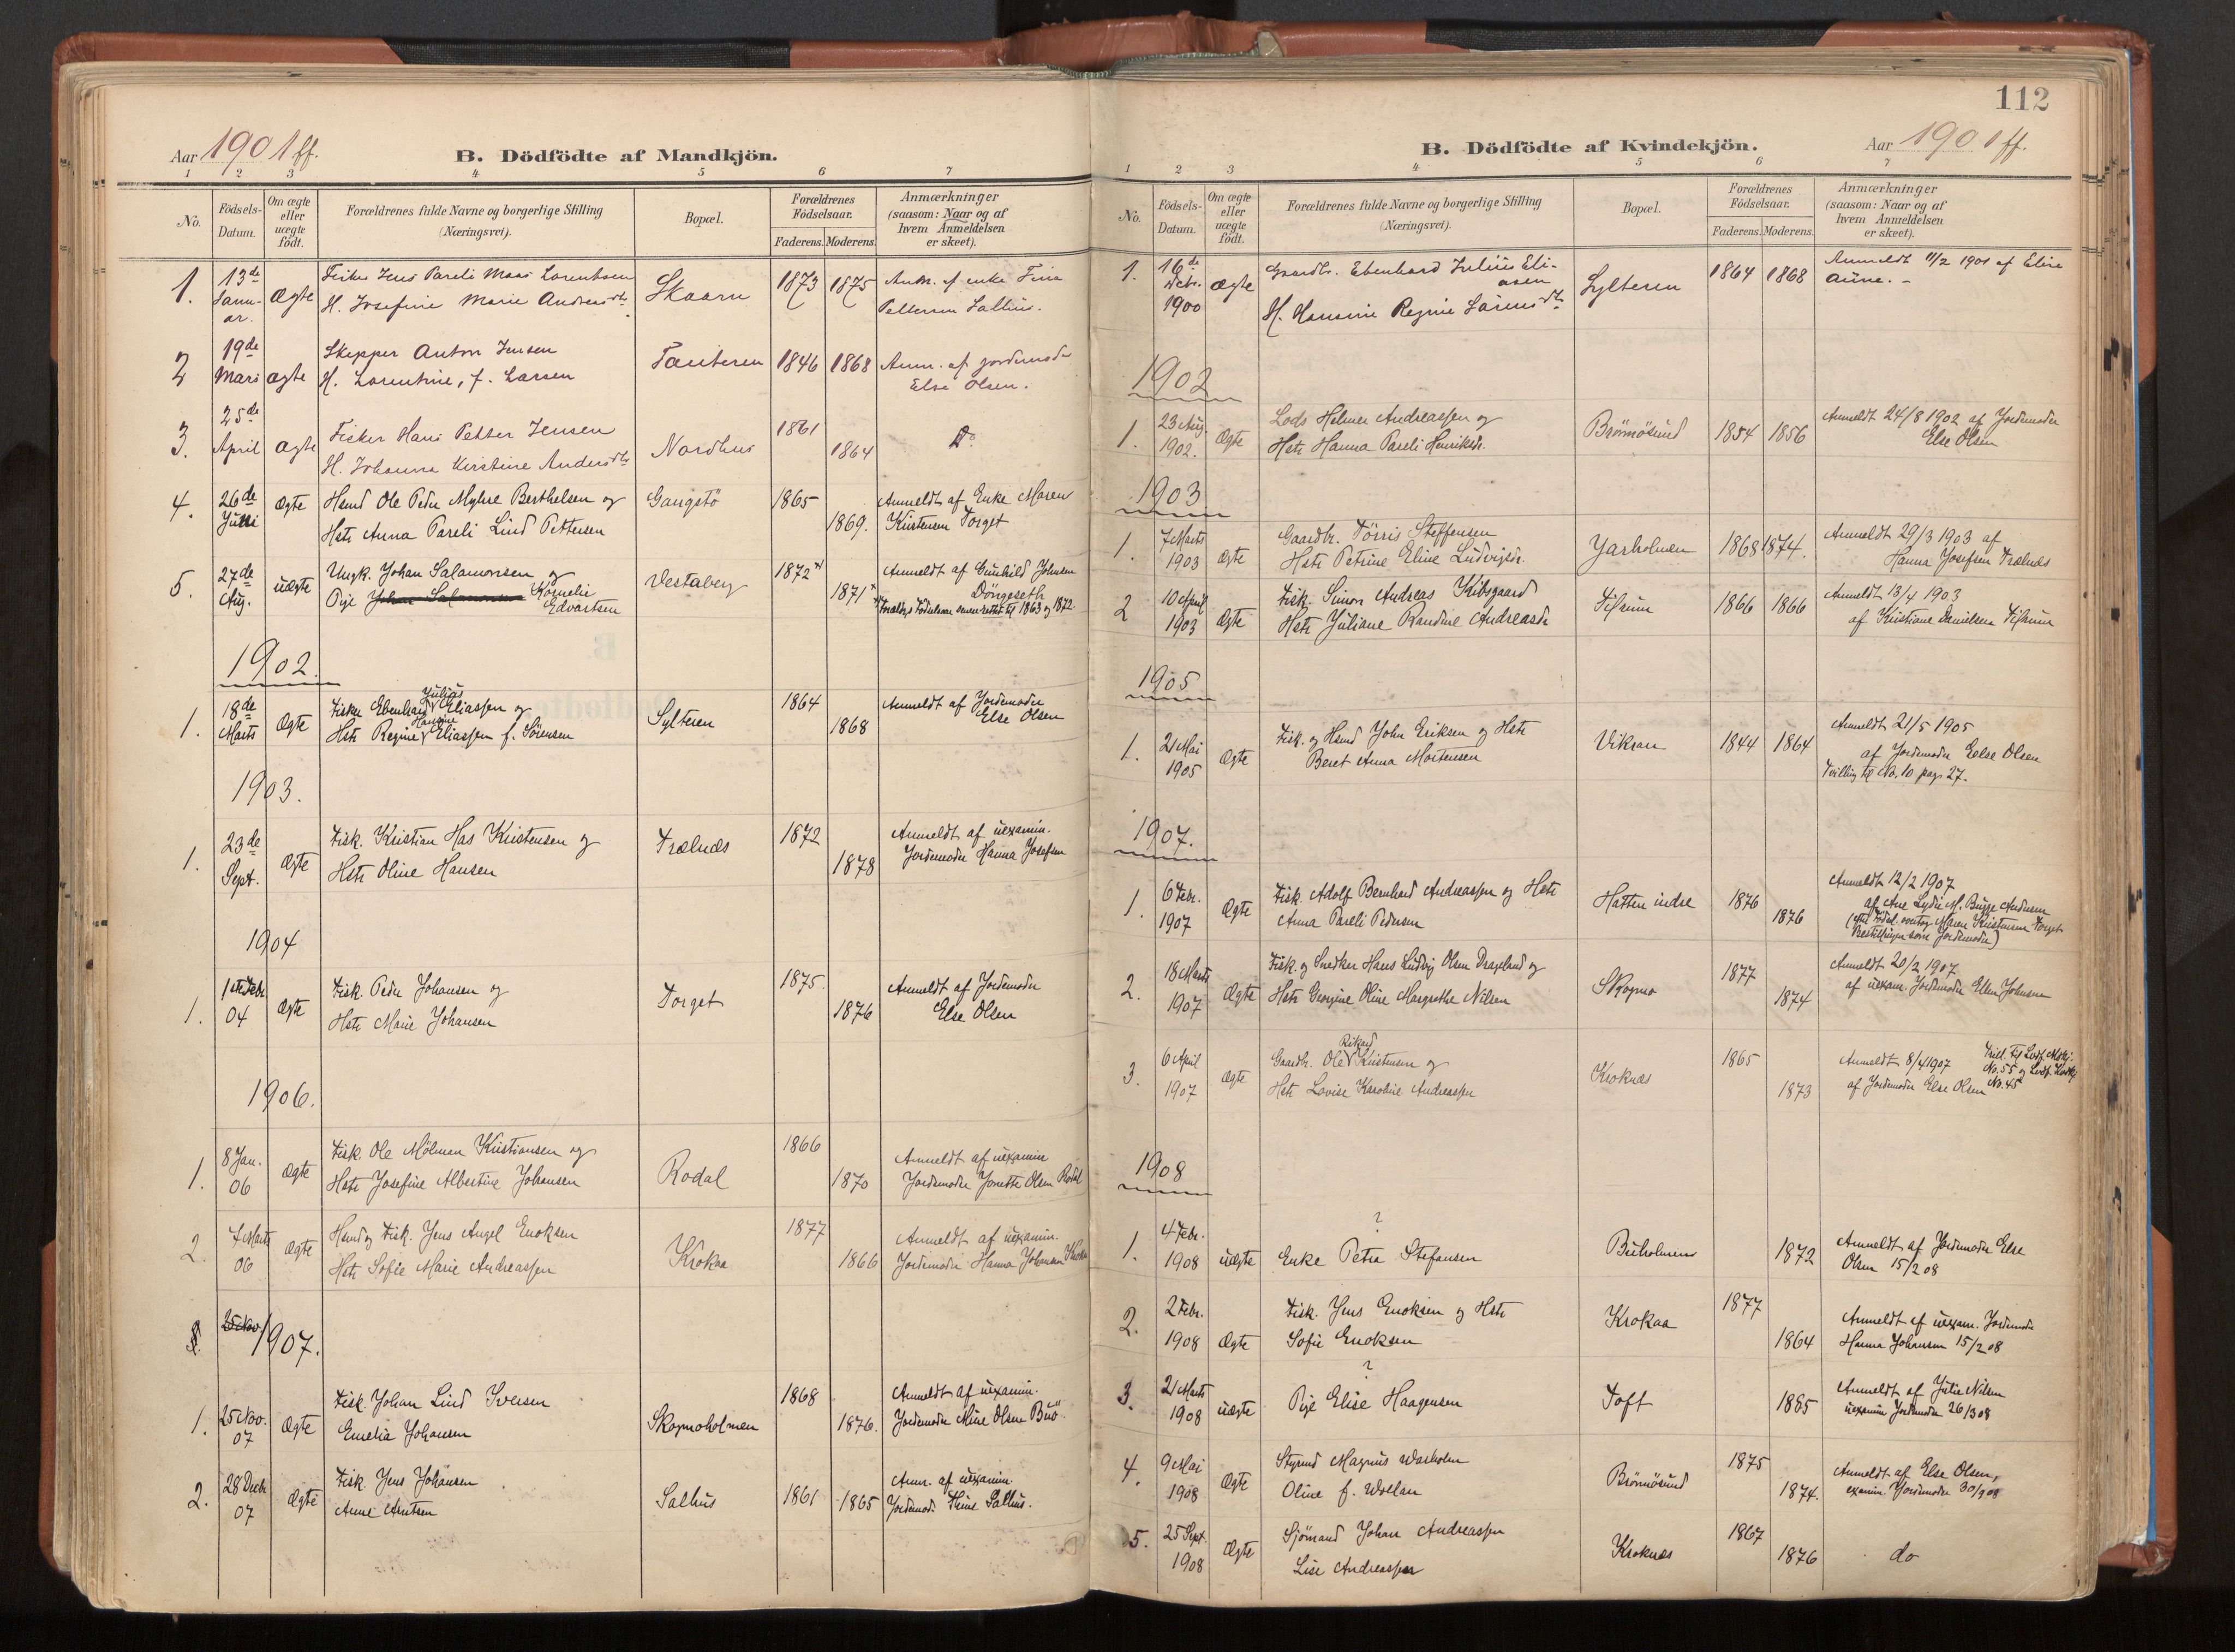 Aar 1901ff.
B. Dödfödte af Mandkjön.
1 2 3 4 5 6 7
No.
Födsels-Datum.
Om ægte eller uægte födt.
Forældrenes fulde Navne og borgerlige Stilling (Næringsvei).
Bopæl.
Forældrenes Födselsaar.
Faderens. Moderens.
Anmærkninger (saasom: Naar og af hvem Anmeldelsen er skeet).
1. 13de Januar. Ægte
Fisker Jens Pareli Moas Lorentsen
H. Josefine Marie Andersdtr.
Skaarn 1873 1875
Anm. af enke Fina
Pettersen Salhus.
2 19de Mars ægte
Skipper Anton Jensen
H. Lorentine, f. Larsen
Tauteren 1846 1868
Anm. af jordemoder
Else Olsen.
3. 25de April ægte
Fisker Hans Petter Jensen
H. Johanna Kirstine Andersdtr
Nordhus 1861 1864
Do
4. 26de Juni Ægte
Hsmd Ole Peder Myhre Berthelsen og
Hstr Anna Pareli Lind Pettersen
Gangstö 1865 1869.
Anmeldt af Enke Maren
Kristensen Torget
5. 27de Aug. uægte
Ungk. Johan Salamonsen og
Pige Johan Salamonsen Kornelie
Edvartsen
Vestaberg 1872 1871
Anmeldt af Gunhild Johnsen
Döngeseth
1902.
1. 18de Marts Ægte
Fisker Ebenhard Julius Eliassen og
Hstr Regine Hansine Eliassen f. Sörensen
Sylteren 1864 1868
Anmeldt af Jordemoder
Else Olsen
1903.
1. 23de Sept. Ægte
Fisk. Kristian Has Kristensen og
Hstr Oline Hansen
Trælnæs 1872 1878
Anmeldt af uexamin.
Jordemoder Hanna Josefsen
1904
1. 1ste Febr. 04 Ægte
Fisk. Peder Johansen og
Hstr Marie Johansen
Torget 1875. 1876
Anmeldt af Jordemoder
Else Olsen
1906.
1. 8 Jan. 06 Ægte
Fisk. Ole Mölman Kristiansen og
Hstr Josefine Albertine Johansen
Rodal 1866 1870
Anmeldt af uexamin
Jordemoder Jonette Olsen Rodal
2. 7 Marts 06 Ægte
Hsmd og Fisk. Jens Angel Enoksen
Hstr Sofie Marie Andreassen
Krokaa 1877 1866
Anmeldt af uexamin.
Jordemoder Hanna Johansen
25 Nov. 1907.
1. 25 Nov. 07 Ægte
Fisk. Johan Lind Iversen
Emelia Johansen
Skogmoholmen 1868 1876.
Anmeldt af uexamin.
Jordemoder Aline Olsen Buö
2. 28 Decbr 07 Ægte
Fisk. Jens Johansen
Anne Arntsen
Salhus 1861 1865
Anm. af uexamin.
Jordemod. Thine Salhus.
112
B. Dödfödte af Kvindekjön.
Aar 1901ff.
1 2 3 4 5 6 7
No.
Födsels-Datum.
Om ægte eller uægte födt.
Forældrenes fulde Navne og borgerlige Stilling (Næringsvei).
Bopæl.
Forældrenes Födselsaar.
Faderens. Moderens.
Anmærkninger (saasom: Naar og af hvem Anmeldelsen er skeet).
1. 16de Debr. 1900 Ægte
Gaardbr. Ebenhard Julius Eliasen
H. Hansine Regine Sörensdtr
Sylteren 1864 1868
Anmeldt 11/2 1901 af Eline
Aune. –
1902
1. 23 Aug. 1902. Ægte
Lods Helmer Andreassen og
Hstr Hanna Pareli Henriksdr.
Brönnösund 1854 1856
Anmeldt 24/8 1902 af Jordemoder
Else Olsen
1903
1. 7 Marts 1903 Ægte
Gaardbr. Törris Steffensen
Hstr Petrine Eline Ludvigsdr.
Yarholmen 1868 1874.
Anmeldt 29/3 1903 af
Hanna Josefsen Trælnæs
2 10 April 1903 Ægte
Fisk. Simon Andreas Kibsgaard
Hstr Juliane Randine Andreasdr
1866 1866
Anmeldt 13/4 1903
af Kristiane Danielsen
1905
1. 21 Mai 1905 Ægte
Fisk. og Hsmd John Eriksen og Hstr
Beret Anna Mortensen
Vikran 1844 1864
Anmeldt 21/5 1905
af Jordemoder Else Olsen
Tvilling til No. 10 pag. 27.
1907.
1. 6 Febr. 1907 Ægte
Fisk. Adolf Bernhard Andreassen og Hstr
Anna Pareli Pedersen
Hatten indre 1876 1876
Anmeldt 12/2 1907
af Ane Lydie M. Bugge Andersen
Maren Kristensen Torget
Bestillingen som Jordemoder)
2. 18 Marts 1907 Ægte
Fisk. og Snedker Hans Ludvig Olsen Drageland og
Hstr Georgine Oline Margrethe Nilsen
Skogmo 1877 1874
Anmeldt 20/3 1907
af uexam. Jordemoder Ellen Johnsen
3. 6 April 1907 Ægte
Gaardbr. Ole Rikard Kristensen og
Hstr Lovise Karoline Andreassen
Kroknæs 1865 1873
Anmeldt 8/4 1907
af Jordemoder Else Olsen
No. 55 og
No. 45
1908
1. 4 Febr. 1908 uægte
?
Enke Petra Stefansen
Buholmen 1872
Anmeldt af Jordemoder Else
Olsen 15/2 08
2. 2 Febr. 1908 Ægte
Fisk. Jens Enoksen og Hstr
Sofie Enoksen
Krokaa 1877 1864
Anmeldt af uexam. Jordemoder
Hanna Johansen 15/2 08
3. 21 Marts 1908 uægte
?
Pige Elise Haagensen
Toft 1885
Anmeldt af Julie Nilsen
uexamin Jordemoder 26/3 08
4. 9 Mai 1908 Ægte
Styrmd Magnus Warholm
Oline f. Wollan
Brönnösund 1875 1874.
Anmeldt af Else Olsen,
examin. Jordemoder 30/9 08
5. 25 Sept. 1908 Ægte
Sjömand Johan Andreassen
Lise Andreassen
Kroknæs 1867 1876
do